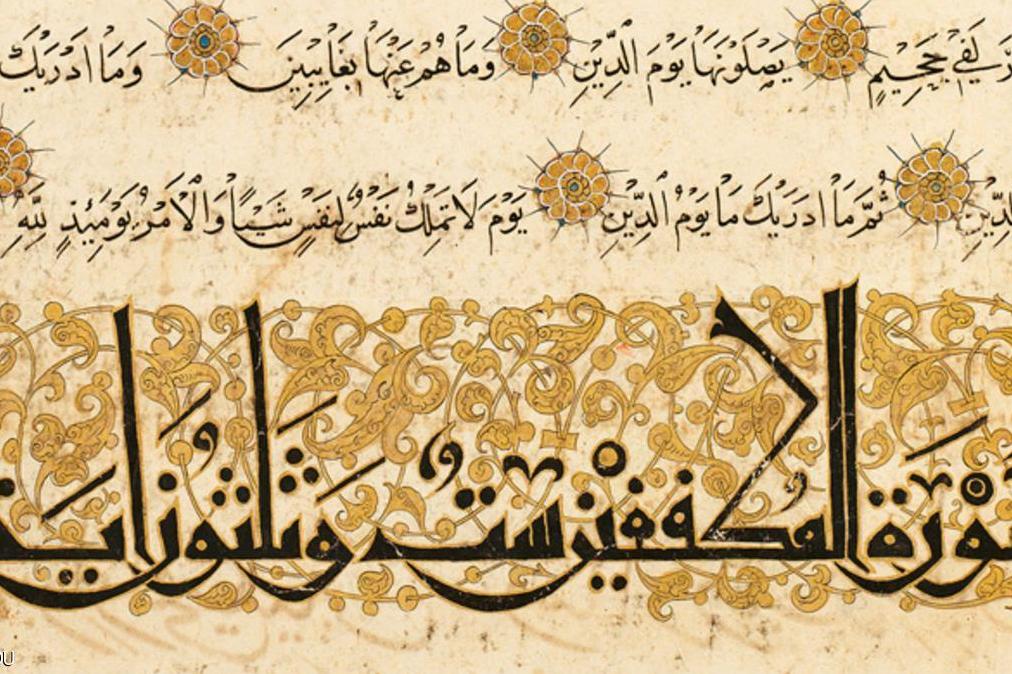 لَفِي جَحِيمٍ يَصْلَوْنَهَا يَوْمَ الدِّينِ وَمَا هُمْ عَنْهَا بِغَايِبِينَ وَمَا ادْرَيكَ
الدِّينِ ثُمَّ مَا ادْرَيكَ مَا يَوْمُ الدِّينِ يَوْمَ لَا تَمْلِكُ نَفْسٌ لِنَفْسٍ شَيْـًٔا وَالْامْرُ يَوْمَئِذٍ لِلَّهِ
ورة المطففين ست وثلثون اية